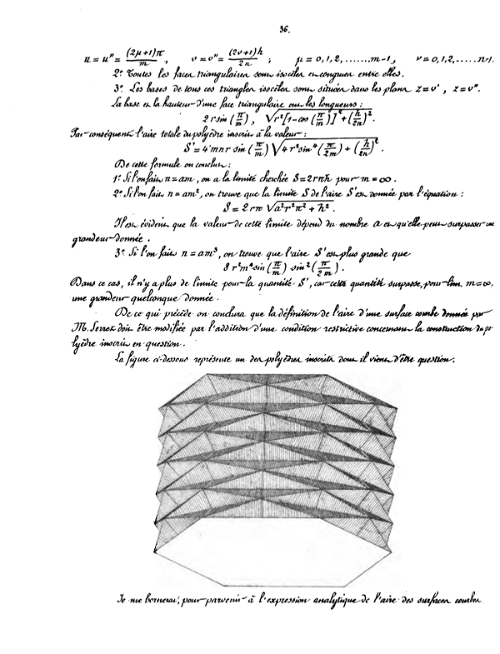 36.
u = u" = (2μ+1)π/m , v = v" = (2ν+1)h/2n ; μ = 0,1,2,.......m-1, ν = 0,1,2,.....n-1.
2º Toutes les faces triangulaires sont isocèles et congrues entre elles.
3º Les bases de tous ces triangles isocèles sont situées dans les plans z = v', z = v".
La base et la hauteur d'une face triangulaire ont les longueurs:
2r sin (π/m), √r²[1-cos(π/m)]²+(h/2n)².
Par conséquent l'aire totale du polyèdre inscrit à la valeur:
S' = 4mnr sin (π/m) √4r² sin⁴(π/2m) + (h/2n)².
De cette formule on conclut:
1º Si l'on fait n = am, on a la limite cherchée S = 2rπh pour m = ∞.
2º Si l'on fait n = am², on trouve que la limite S de l'aire S' est donnée par l'équation:
S = 2rπ √a²r²π⁴ + h².
Il est évident que la valeur de cette limite dépend du nombre a et qu'elle peut surpasser une
grandeur donnée.
3º Si l'on fait n = am³, on trouve que l'aire S' est plus grande que
8r²m⁴ sin(π/m) sin²(π/2m).
Dans ce cas, il n'y a plus de limite pour la quantité S', car cette quantité surpasse, pour lim. m = ∞,
une grandeur quelconque donnée.
De ce qui précède on conclura que la définition de l'aire d'une surface courbe donnée par
M. Serret doit être modifiée par l'addition d'une condition restrictive concernant la construction du po-
lyèdre inscrit en question.
La figure ci-dessous représente un des polyèdres inscrits dont il vient d'être question.
Je me bornerai, pour parvenir à l'expression analytique de l'aire des surfaces courbes